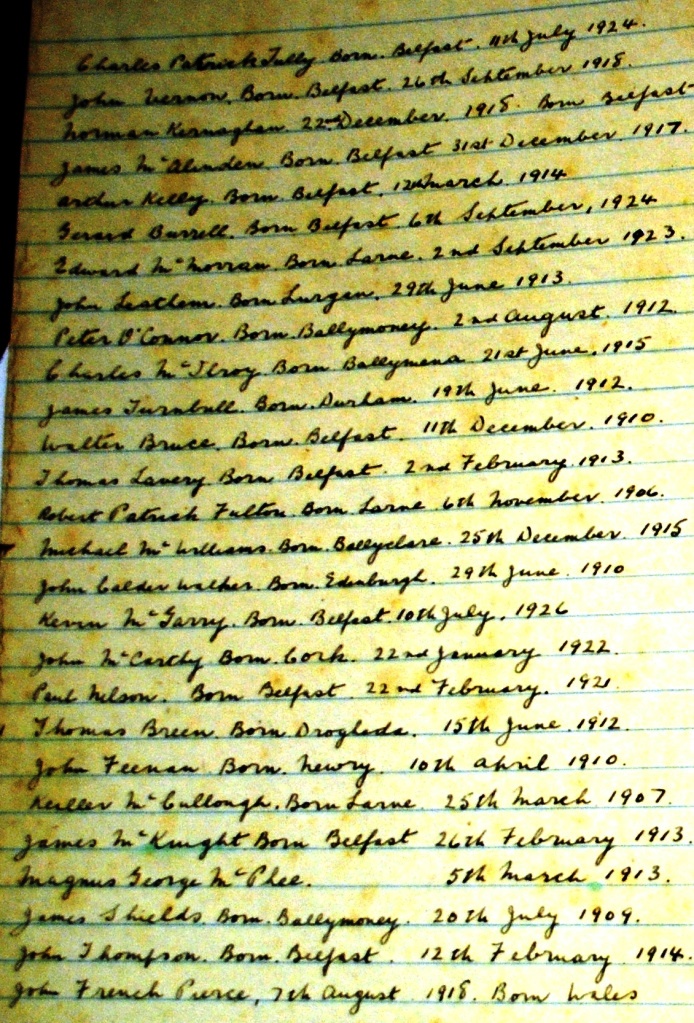 Charles Patrick Tully Born. Belfast. 11th July 1924.
John Vernon. Born. Belfast. 26th September 1918.
Norman Kernaghan. 22nd December. 1918. Born Belfast
James McAlinden. Born. Belfast 31st December 1917.
Arthur Kelly. Born. Belfast. 12th March. 1914
Gerard Burrell. Born Belfast. 6th September, 1924
Edward McMorran. Born. Larne. 2nd September 1923.
John Leathem. Born Lurgan. 29th June 1913.
Peter O'Connor. Born. Ballymoney. 2nd August. 1912.
Charles McIlroy. Born Ballymena 21st June. 1915
James Turnbull. Born. Durham. 19th June. 1912.
Walter Bruce. Born. Belfast. 11th December. 1910.
Thomas Lavery Born Belfast. 2nd February 1913.
Robert Patrick Fulton. Born. Larne 6th November. 1906.
Michael McWilliams. Born. Ballyclare. 25th December. 1915
John Calder Walker. Born. Edinburgh. 29th June. 1910
Kevin McGarry. Born. Belfast. 10th July. 1926
John McCarthy Born. Cork. 22nd January 1922.
Paul Nelson. Born Belfast. 22nd February. 1921
Thomas Breen. Born Drogheda. 15th June. 1912.
John Feenan Born. Newry. 10th April 1910.
Keiller McCullough. Born Larne. 25th March 1907.
James McKnight Born Belfast 26th February 1913.
Magnus George McPhee. 5th March 1913.
James Shields. Born. Ballymoney. 20th July 1909.
John Thompson. Born. Belfast. 12th February 1914.
John French Pierce, 7th August 1918. Born Wales